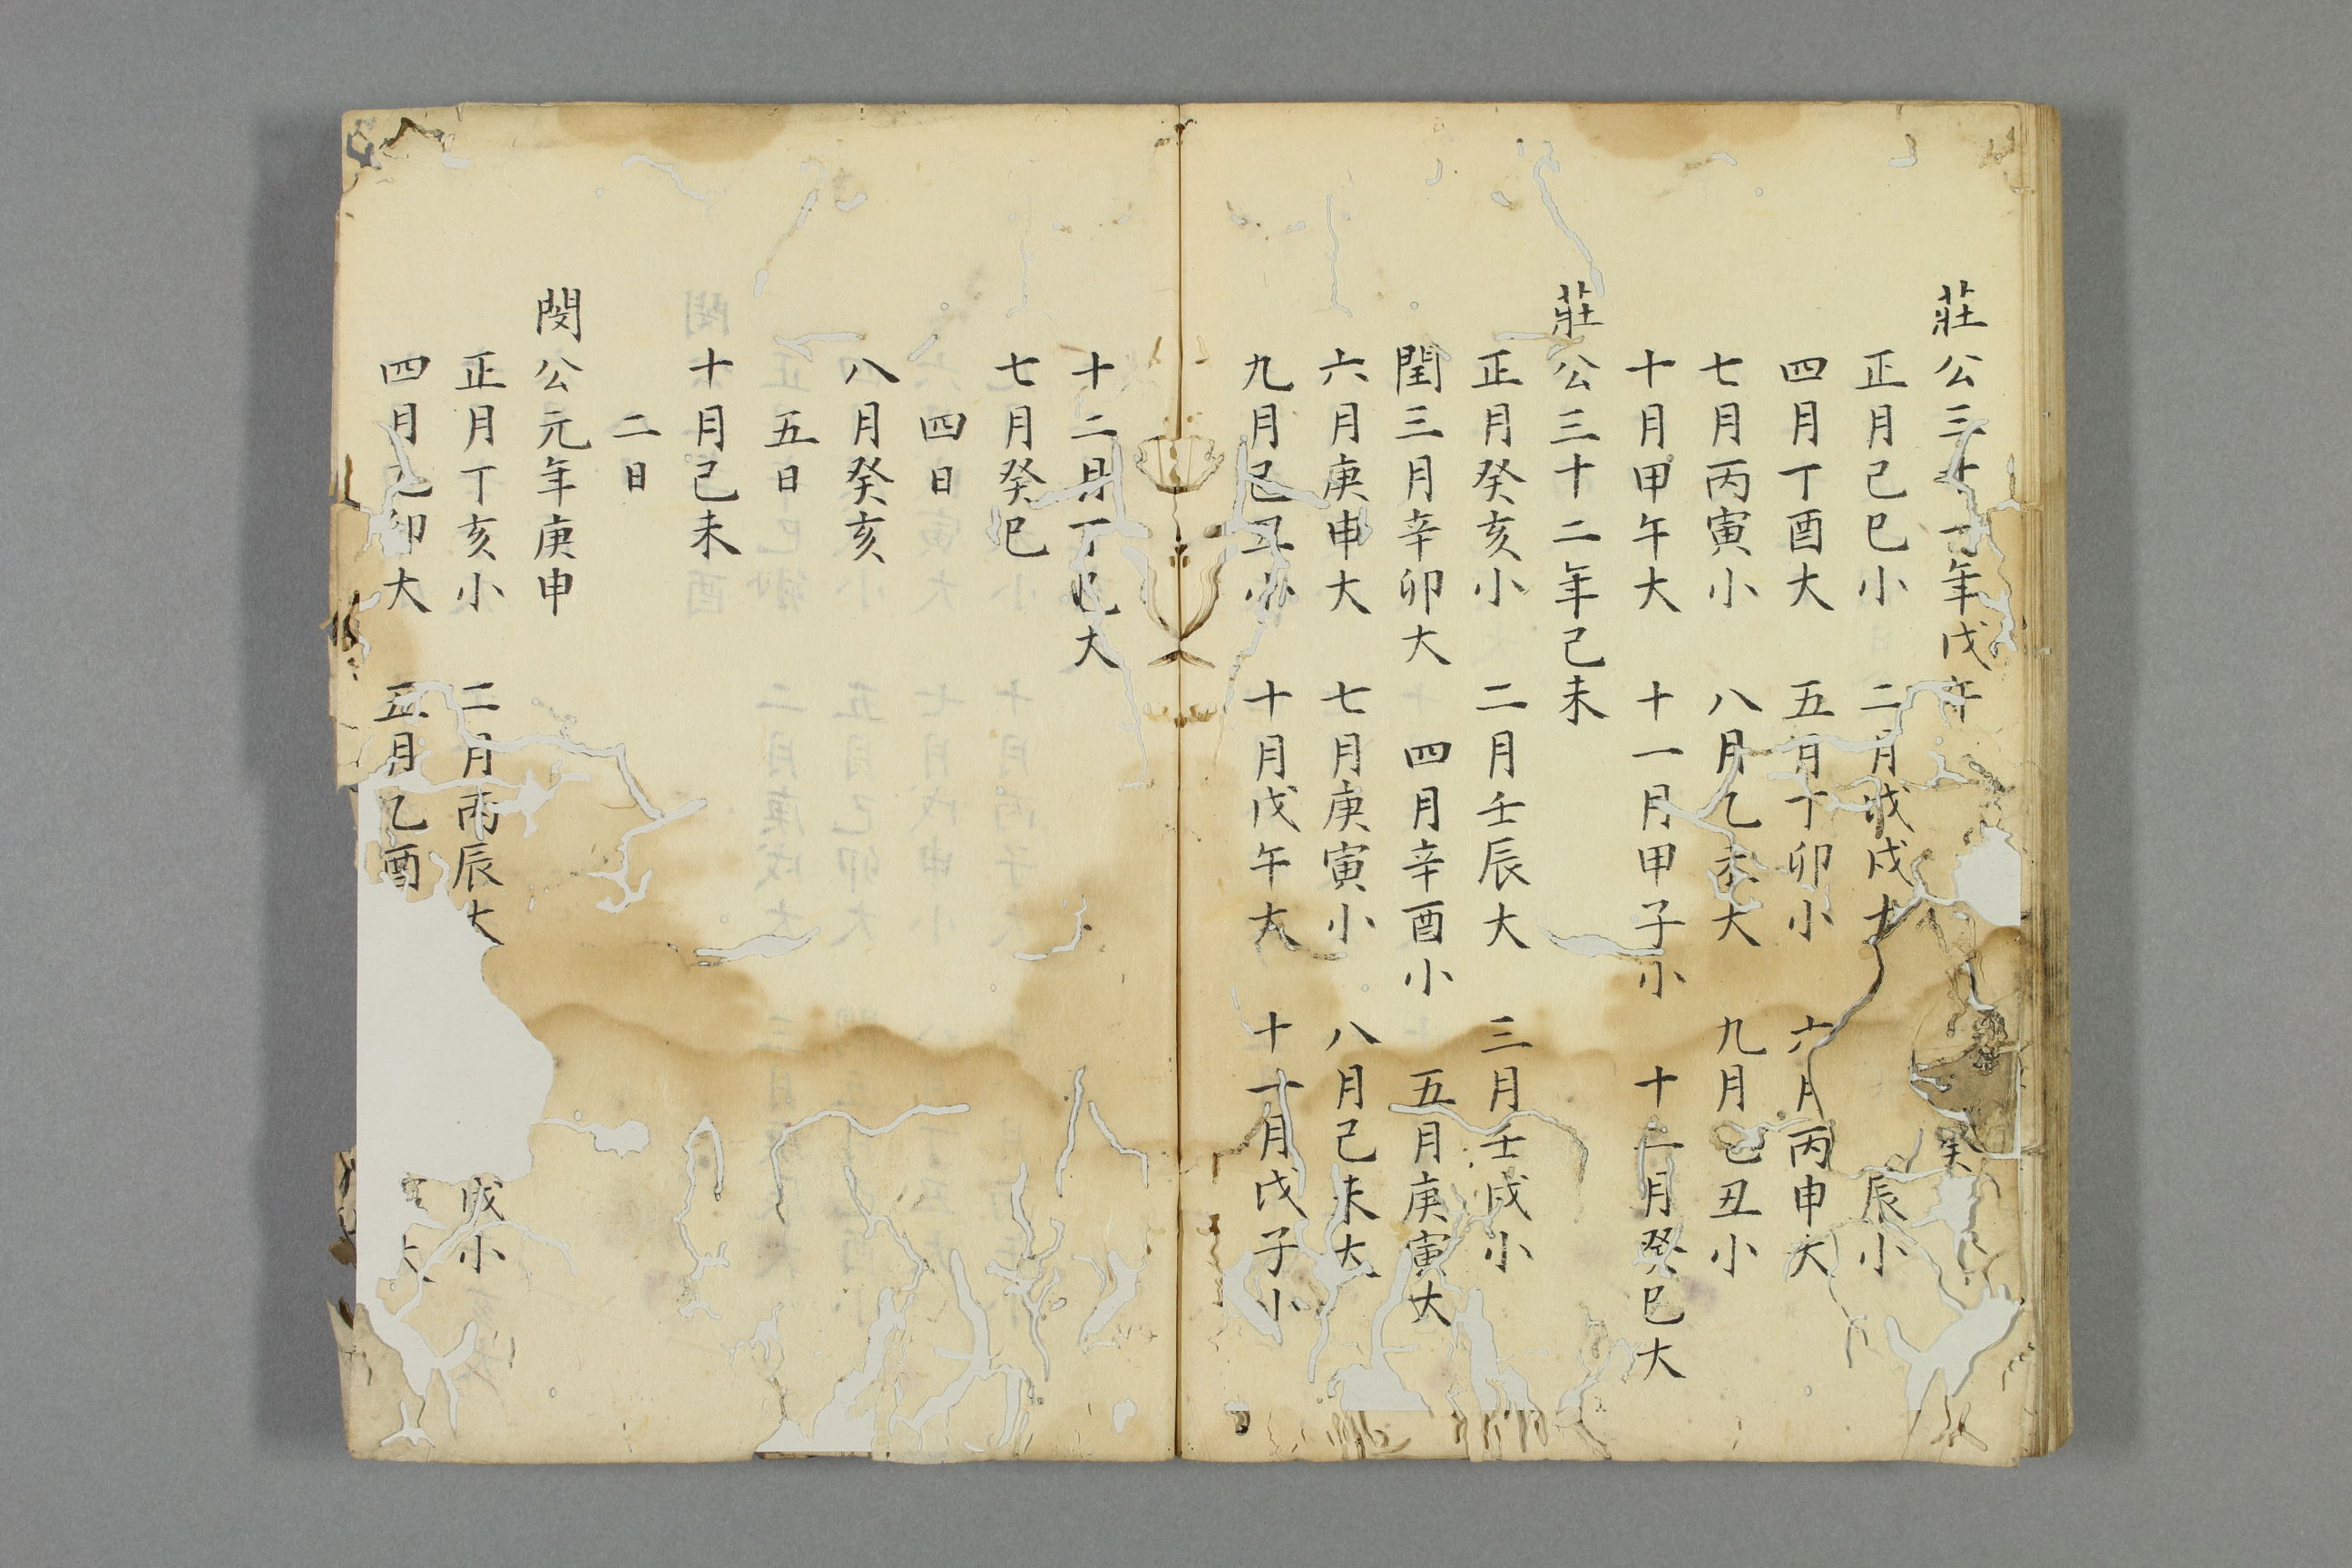 莊公三十一年戊午
正月己巳小 二月戊戌大 辰小
四月丁酉大 五月丁卯小 六月丙申大
七月丙寅小 八月乙未大 九月己丑小
十月甲午大 十一月甲子小 十二月癸巳大
莊公三十二年己未
正月癸亥小 二月壬辰大 三月壬戌小
閏三月辛卯大 四月辛酉小 五月庚寅大
六月庚申大 七月庚寅小 八月己未大
九月己丑小 十月戊午大 十一月戊子小
十二月丁巳大
七月癸巳
四日
八月癸亥
五日
十月己未
二日
閔公元年庚申
正月丁亥小 二月丙辰大 戌小
四月乙卯大 五月乙酉 大